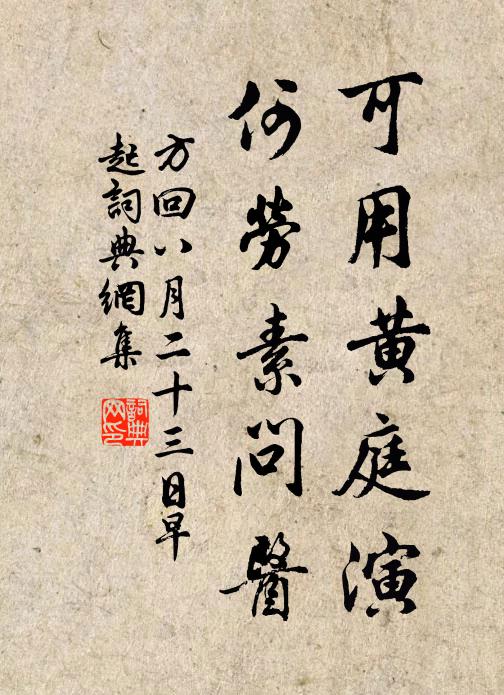 可用黄庭演
何勞素問醫
方回八月二十三日早
起詞典網集
詞典
网印